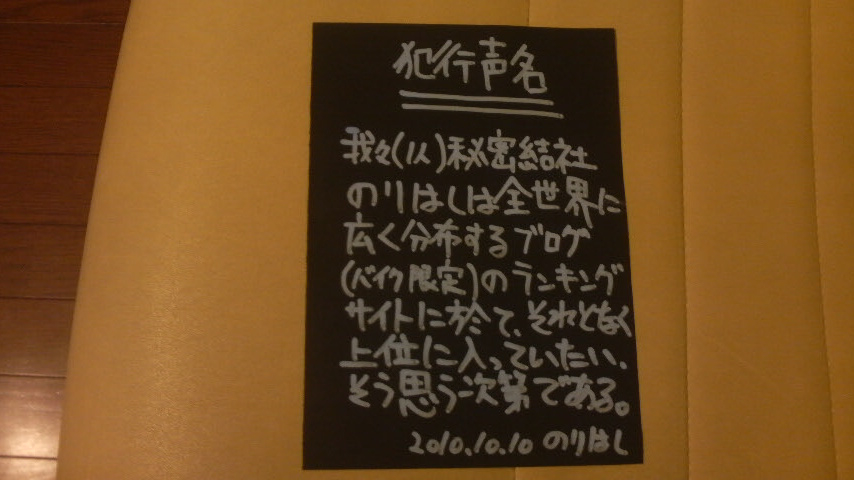 犯行声名
我々(1人)秘密結社
のりはしは全世界に
広く分布するブログ
(バイク限定)のランキング
サイトに於て、それとなく
上位に入っていたい、
そう思う次第である。
2010.10.10 のりはし